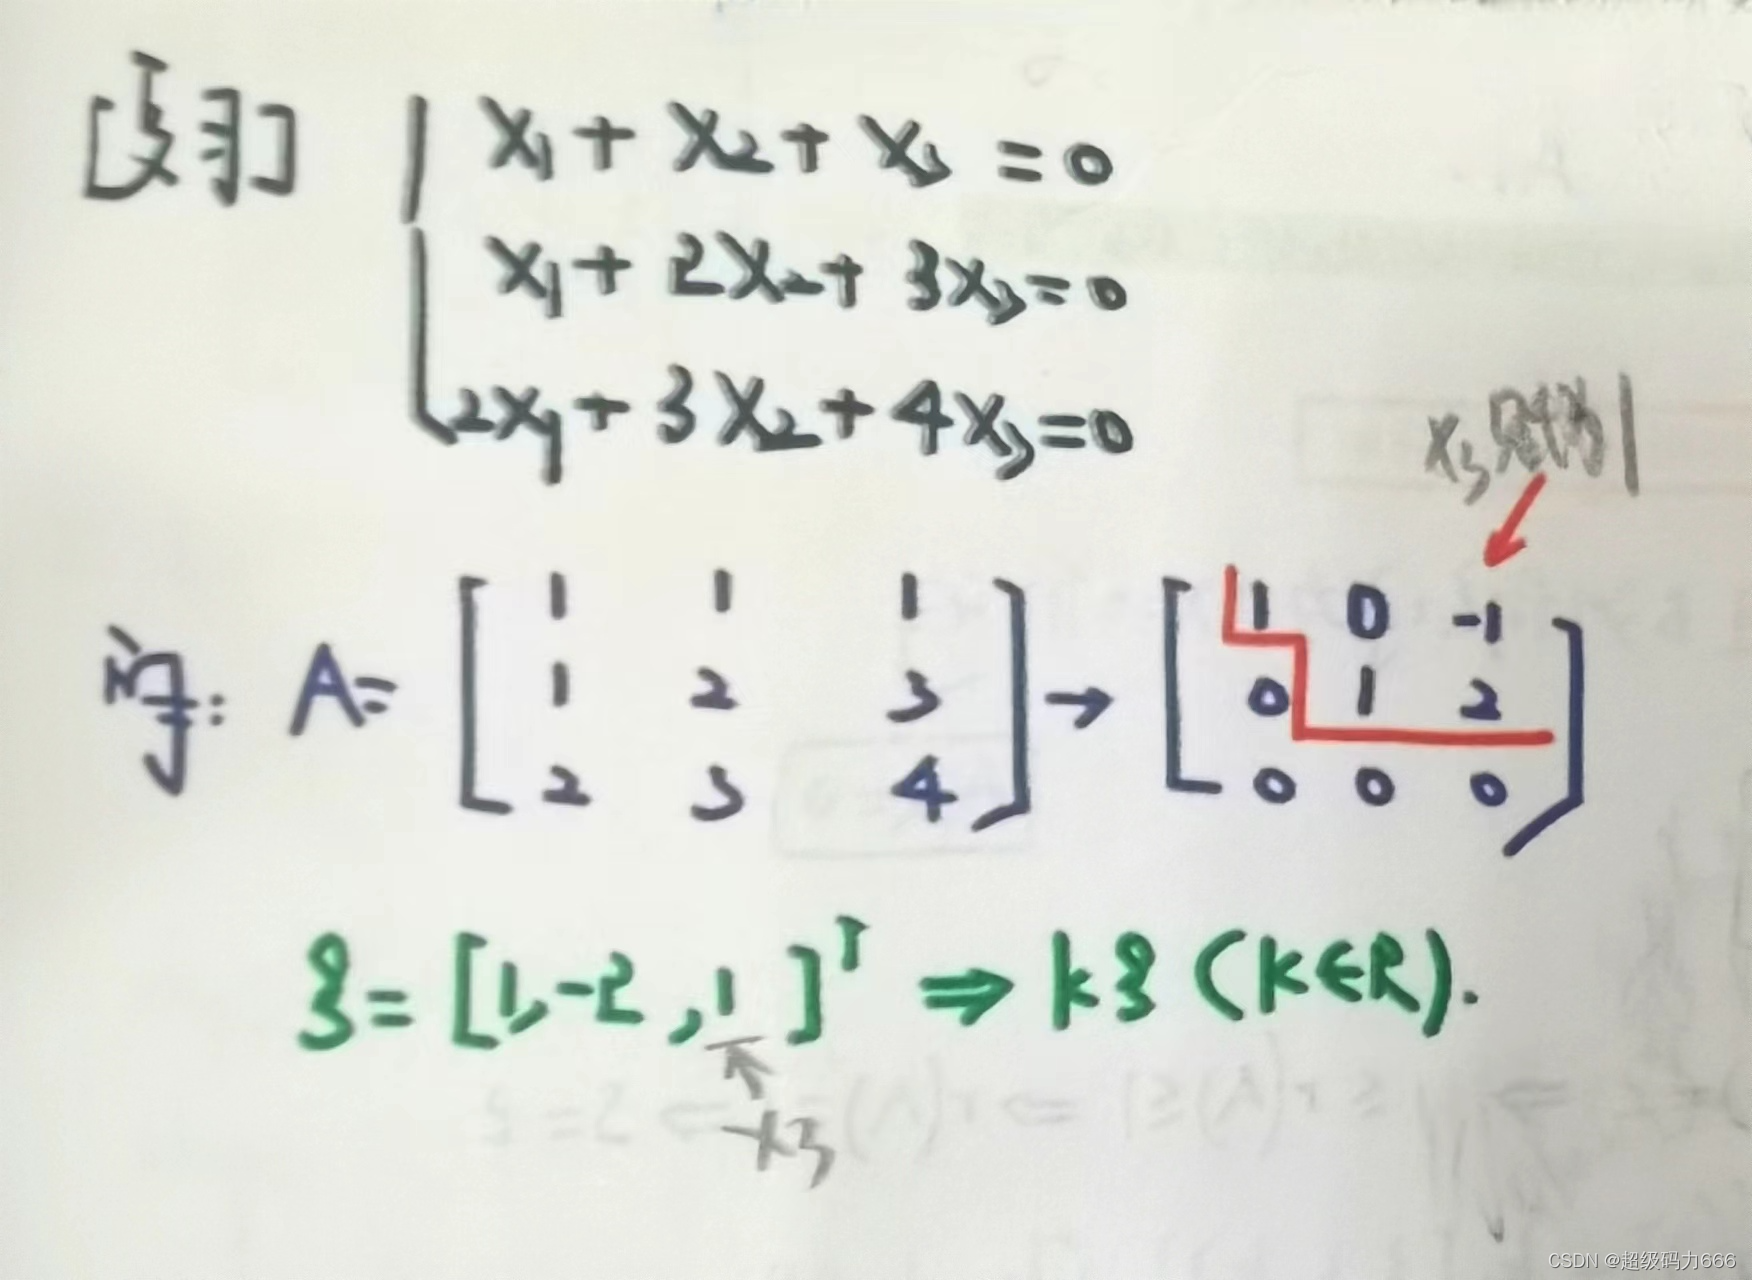 [复习] x₁ + x₂ + x₃ = 0
x₁ + 2x₂ + 3x₃ = 0
2x₁ + 3x₂ + 4x₃ = 0
x₃取为1
A = [ 1 1 1 → [ 1 0 -1
1 2 3 0 1 2
2 3 4 ] 0 0 0 ]
ξ = [1, -2, 1]ᵀ ⇒ kξ (k∈R).
x₃
CSDN @超级码力666